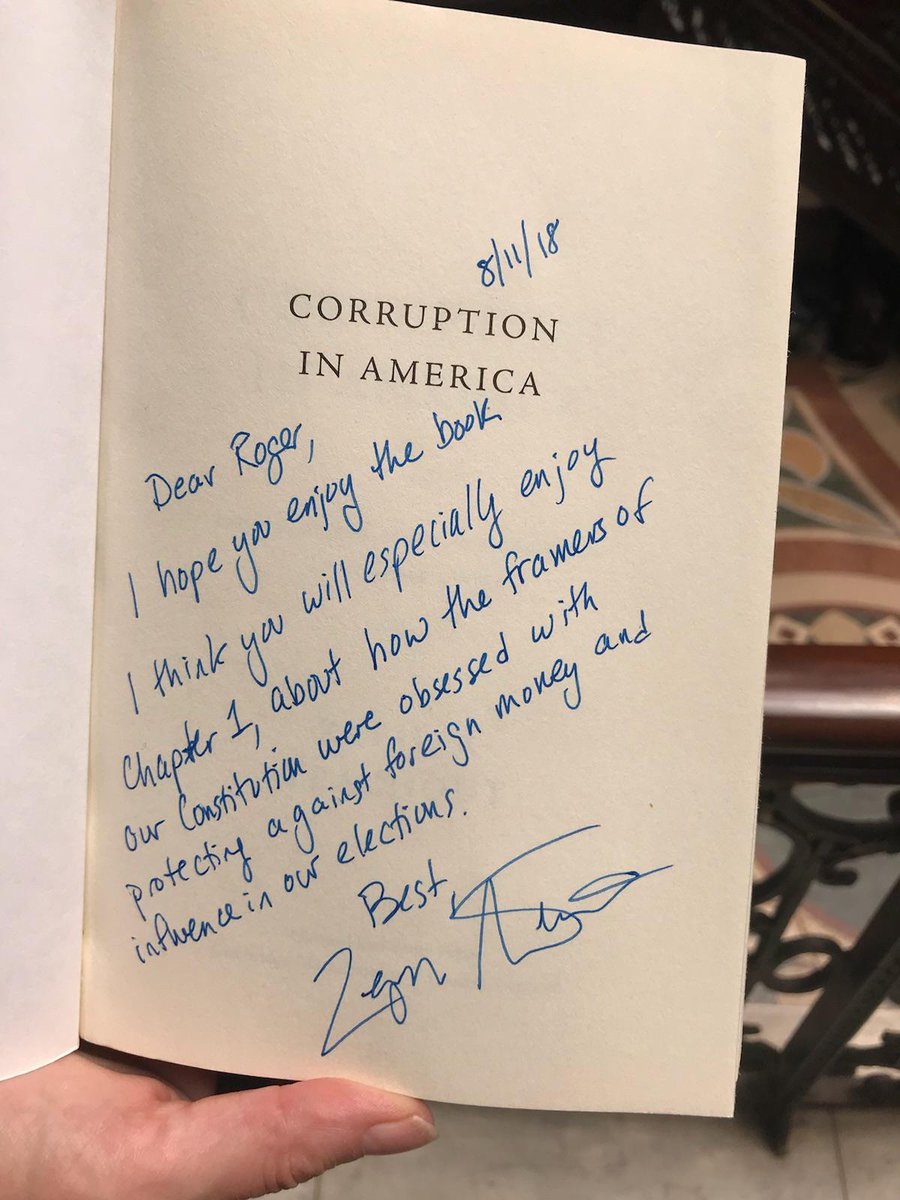 8/11/18
CORRUPTION
IN AMERICA
Dear Roger,
I hope you enjoy the book
I think you will especially enjoy
Chapter 1, about how the framers of
our Constitution were obsessed with
protecting against foreign money and
influence in our elections.
Best,
Zephyr Teachout